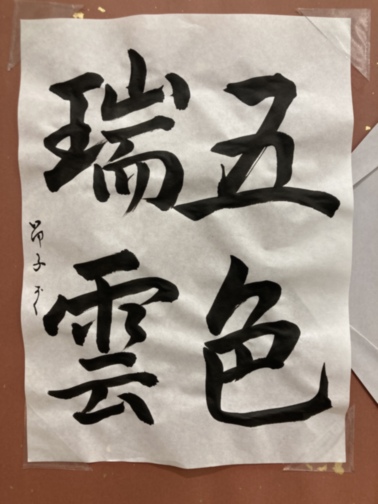 五色
瑞雲